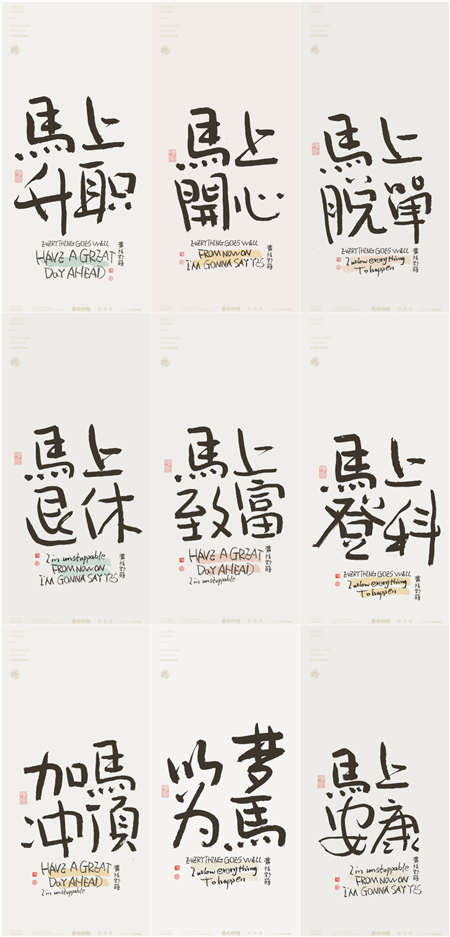 馬上
升职
EVERYTHING GOES WELL
HAVE A GREAT
DAY AHEAD
馬上
開心
EVERYTHING GOES WELL
FROM NOW ON
I'M GONNA SAY YES
馬上
脫單
EVERYTHING GOES WELL
I allow everything
To happen
馬上
退休
I'm unstoppable
FROM NOW ON
I'M GONNA SAY YES
馬上
致富
HAVE A GREAT
DAY AHEAD
I'm unstoppable
馬上
登科
EVERYTHING GOES WELL
I allow everything
To happen
加馬
冲頂
HAVE A GREAT
DAY AHEAD
I'm unstoppable
以梦
为馬
EVERYTHING GOES WELL
I allow everything
To happen
馬上
安康
I'm unstoppable
FROM NOW ON
I'M GONNA SAY YES